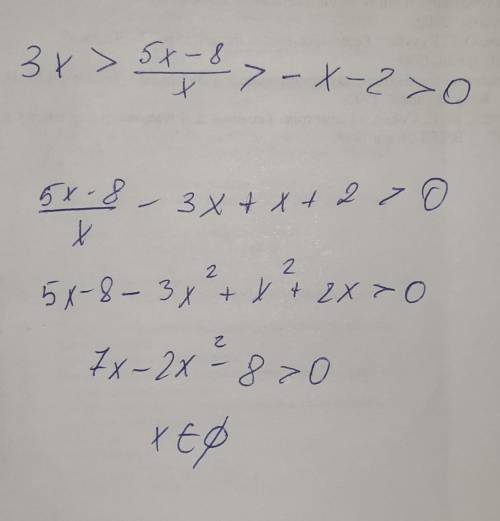 3x > (5x-8)/x > -x-2 > 0
(5x-8)/x - 3x + x + 2 > 0
5x-8 - 3x² + x² + 2x > 0
7x - 2x² - 8 > 0
x ∈ ∅